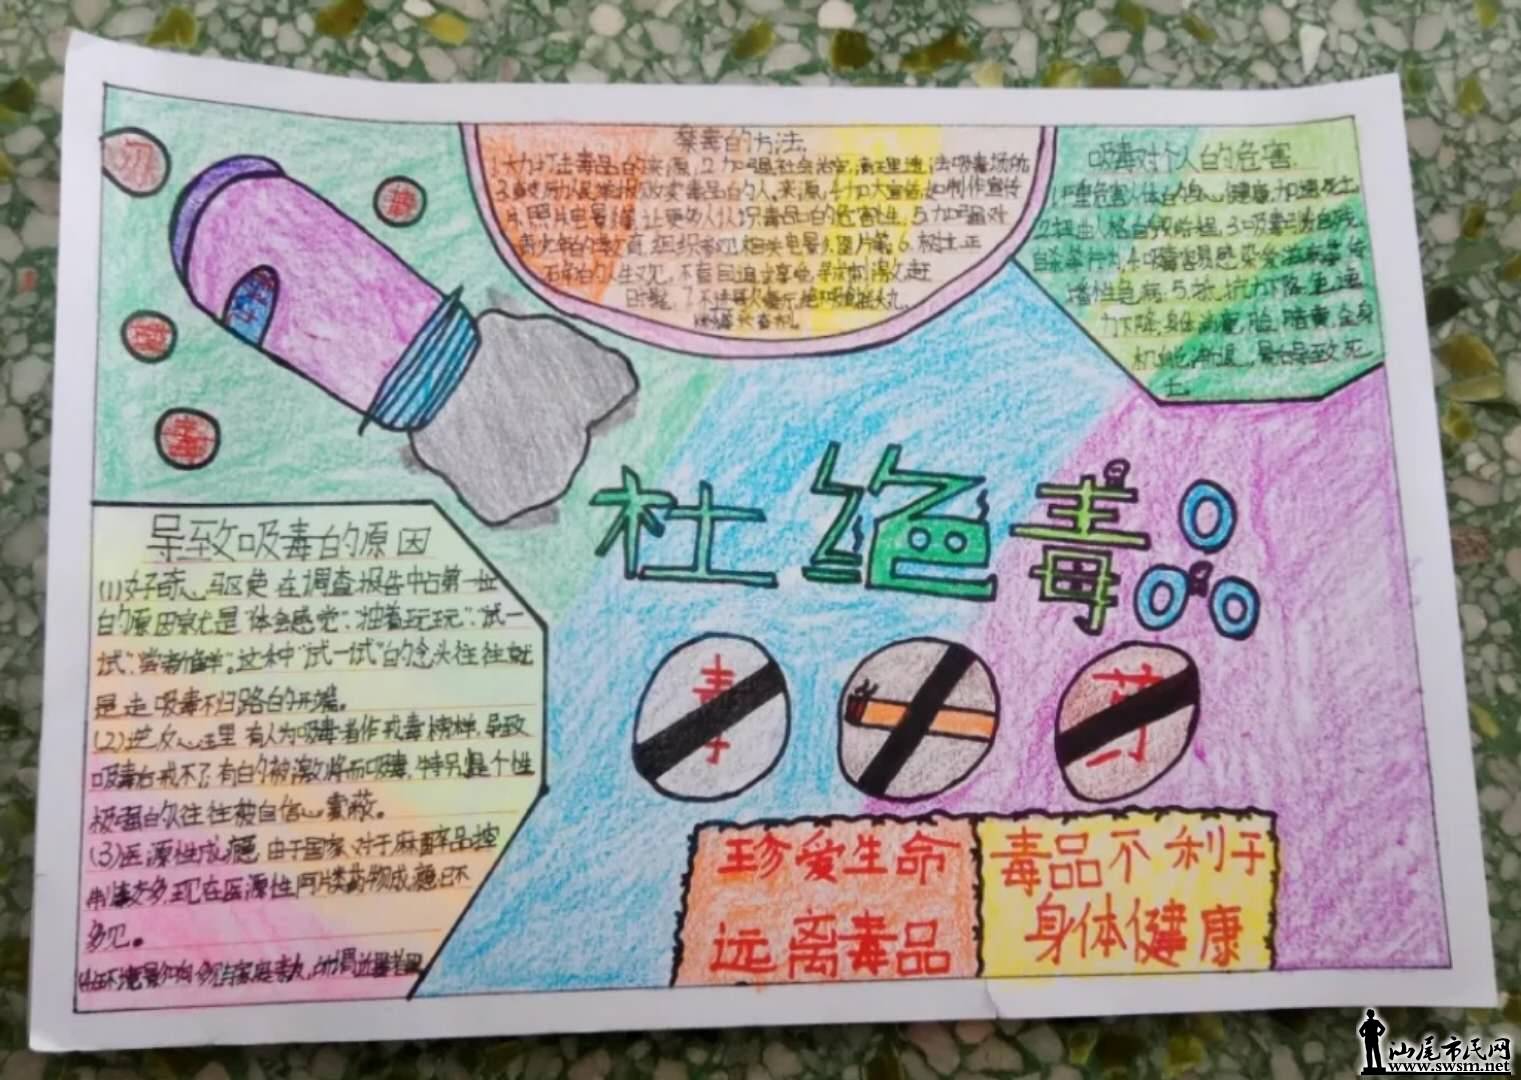 禁毒的方法
1.大力打击毒品的来源,2.加强社会治安,清理违法吸毒场所
3.贩卖毒品的人,来源,4.加大宣传,如制作宣传
片,照片电影,让更多人认识毒品的危害性,5.加强对
青少年的教育,组织参观相关电影及图片等6.树立正
不盲目追求享受,寻求刺激,赶
时髦.7.不
吸毒对个人的危害
1.严重危害人体的身心健康,加速死亡
2.扭曲人格,自毁前程,3.吸毒引发自残,
自杀等行为,4.吸毒容易感染传
5.抵抗力下降,免疫
力下降,身体消瘦,脸暗黄,全身
机能渐退,最后导致死
亡
杜绝毒
导致吸毒的原因
(1)好奇心驱使 在调查报告中占第一位
的原因就是"体会感觉","抽着玩玩","试一
试","尝着新鲜"。这种"试一试"的念头往往就
是走吸毒不归路的开端。
(2)逆反心理 有人为吸毒者作戒毒榜样,导致
吸毒者戒不了,有的被激将而吸毒,特别是个性
极强的人往往被自信心蒙蔽。
(3)医源性成瘾 由于国家对于麻醉品控
制较多,现在医源性阿片类药物成瘾已不
多见。
(4)环境影响
毒
药
珍爱生命
远离毒品
毒品不利于
身体健康
汕尾市民网
www.swsm.net